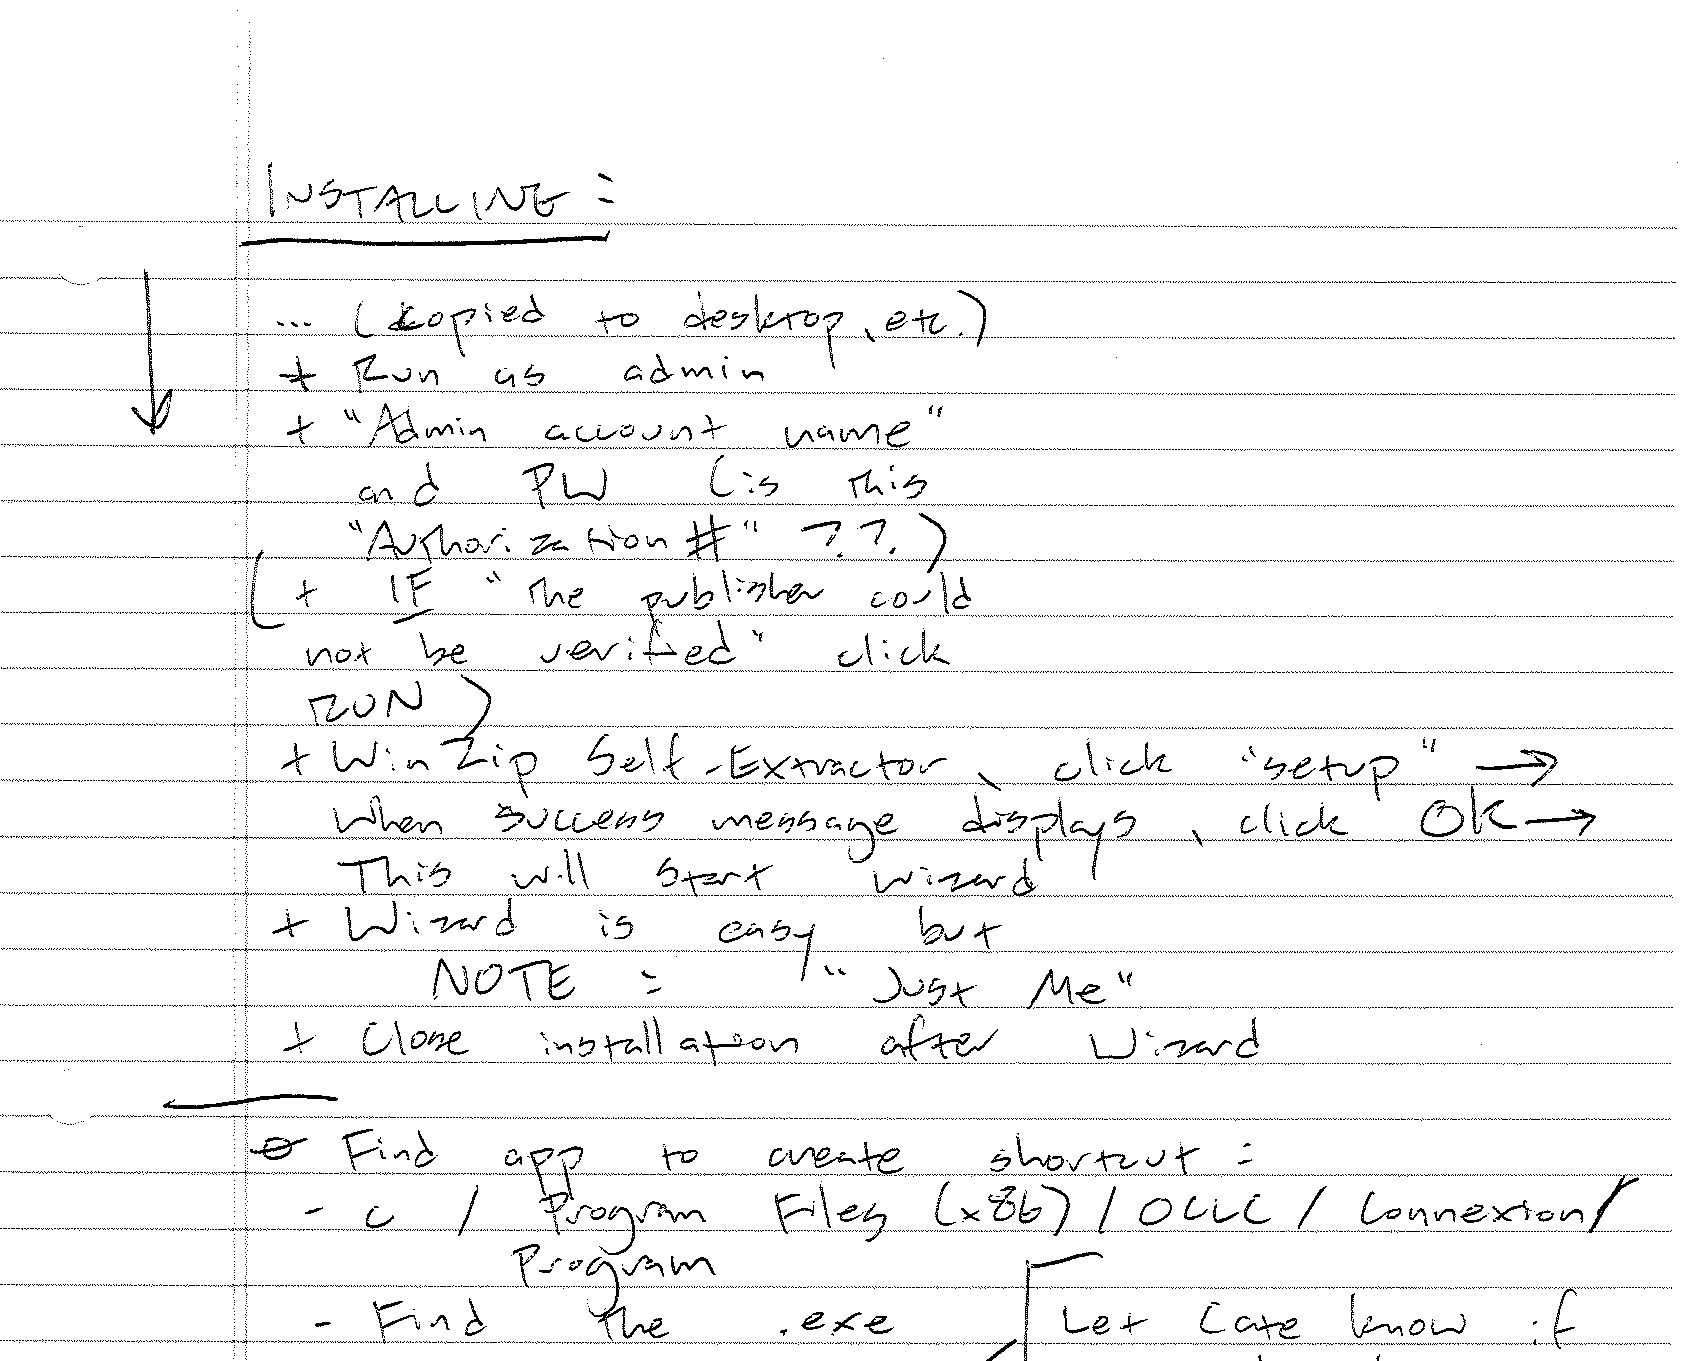 INSTALLING:
... (copied to desktop, etc.)
+ Run as admin
+ "Admin account name"
and PW (is this
"Authorization #" ??)
(+ IF "The publisher could
not be verified" click
RUN)
+ WinZip Self-Extractor, click "setup" →
When success message displays, click OK →
This will start wizard
+ Wizard is easy but
NOTE: "Just Me"
+ Close installation after Wizard
Find app to create shortcut:
- C / Program Files (x86) / OCLC / Connexion /
Program
- Find the .exe
Let Cate know if